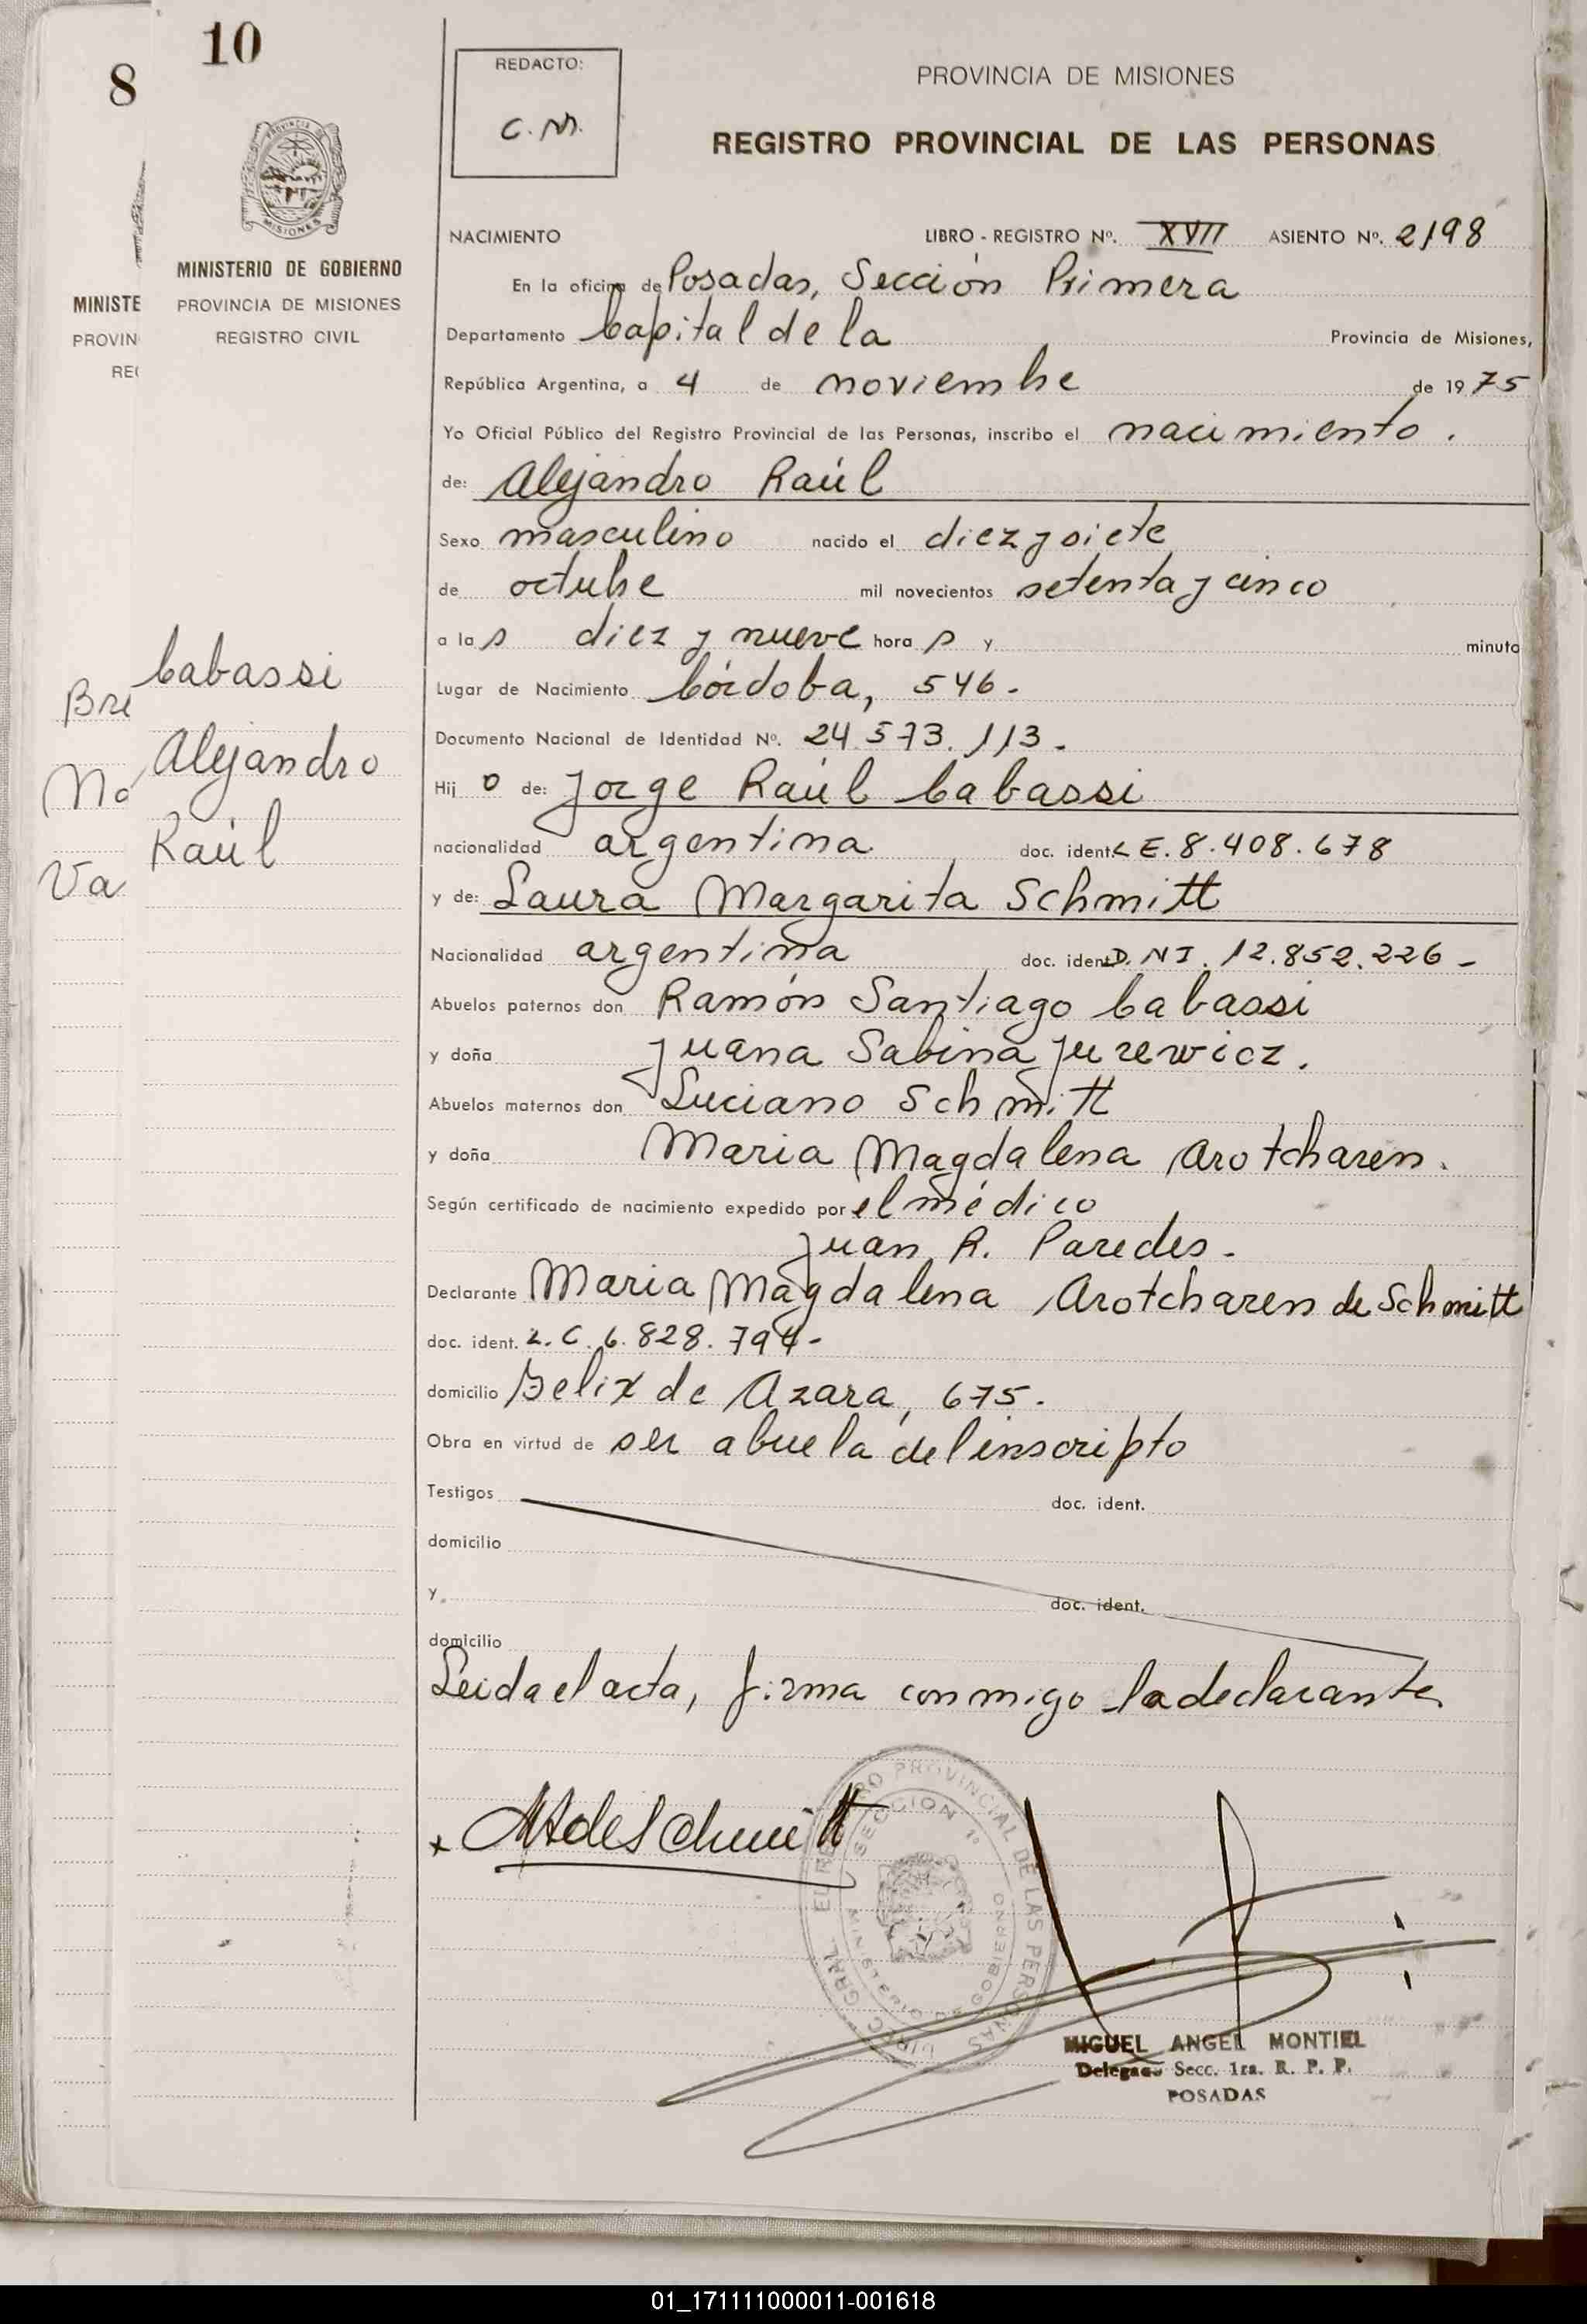 10
8
REDACTO:
C. M.
PROVINCIA DE MISIONES
REGISTRO PROVINCIAL DE LAS PERSONAS
MINISTERIO DE GOBIERNO
PROVINCIA DE MISIONES
REGISTRO CIVIL
MINISTE
PROVIN
RE
Cabassi
Alejandro
Raúl
Bre
No
Va
NACIMIENTO LIBRO - REGISTRO Nº. XVII ASIENTO Nº. 2198
En la oficina de Posadas, Sección Primera
Departamento Capital de la Provincia de Misiones,
República Argentina, a 4 de noviembre de 1975
Yo Oficial Público del Registro Provincial de las Personas, inscribo el nacimiento.
de: Alejandro Raúl
Sexo masculino nacido el diez y siete
de octubre mil novecientos setenta y cinco
a las diez y nueve horas y minuto
Lugar de Nacimiento Córdoba, 546.
Documento Nacional de Identidad Nº. 24.573.113.
Hijo de: Jorge Raúl Cabassi
nacionalidad argentina doc. ident. L E. 8.408.678
y de: Laura Margarita Schmitt
Nacionalidad argentina doc. ident. D.N I. 12.852.226 -
Abuelos paternos don Ramón Santiago Cabassi
y doña Juana Sabina Jurewicz.
Abuelos maternos don Luciano Schmitt
y doña Maria Magdalena Arotcharen.
Según certificado de nacimiento expedido por el médico
Juan R. Paredes.
Declarante Maria Magdalena Arotcharen de Schmitt
doc. ident. L. C. 6.828.794-
domicilio Felix de Azara, 675.
Obra en virtud de ser abuela del inscripto
Testigos doc. ident.
domicilio
y doc. ident.
domicilio
Leida el acta, firma conmigo la declarante
MAdeSchmitt
REGISTRO PROVINCIAL DE LAS PERSONAS
SECCION 1ª
MINISTERIO DE GOBIERNO
MIGUEL ANGEL MONTIEL
Delegado Secc. 1ra. R. P. P.
POSADAS
01_171111000011-001618